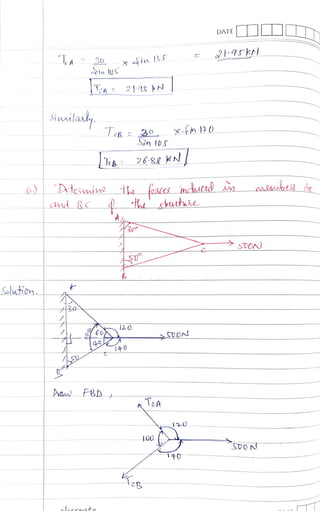 DATE
TCA = 30 / Sin 105 x Sin 135 = 21.95 kN
TCA = 21.95 kN
Similarly,
TCB = 30 / Sin 105 x Sin 120
TCB = 26.88 kN
6) Determine the forces induced in members AC
and BC of the structure
A
30°
C
500N
50°
B
Solution.
A
30
120
60
500N
100
40
140
C
50
B
Draw FBD,
TCA
120
100
500N
140
TCB